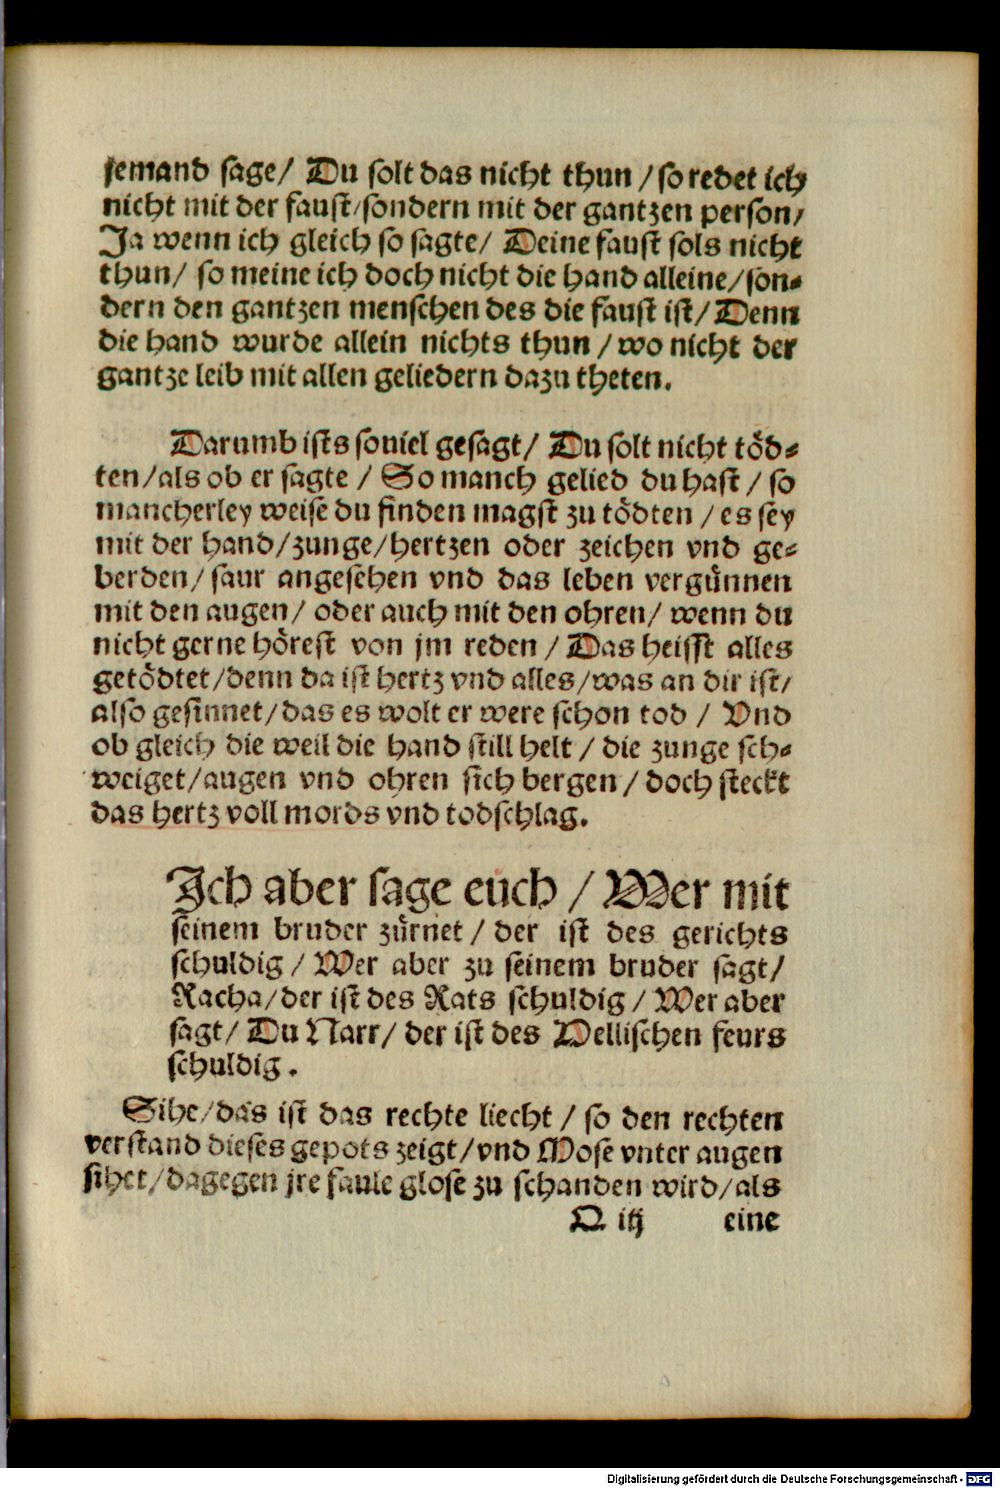 jemand sage/ Du solt das nicht thun /so redet ich
nicht mit der faust/sondern mit der gantzen person/
Ja wenn ich gleich so sagte/ Deine faust sols nicht
thun/ so meine ich doch nicht die hand alleine/son-
dern den gantzen menschen des die faust ist/ Denn
die hand wurde allein nichts thun / wo nicht der
gantze leib mit allen geliedern dazu theten.
Darumb ists souiel gesagt/ Du solt nicht tödten-
ten/als ob er sagte / So manch gelied du hast / so
mancherley weise du finden magst zu tödten / es sey
mit der hand/zunge/hertzen oder zeichen vnd ge-
berden/ saur angesehen vnd das leben vergünnen
mit den augen/ oder auch mit den ohren/ wenn du
nicht gerne hörest von jm reden / Das heisst alles
getödtet/denn da ist hertz vnd alles/was an dir ist/
also gesinnet/das es wolt er were schon tod / Vnd
ob gleich die weil die hand still helt / die zunge sch-
weiget/augen vnd ohren sich bergen / doch steckt
das hertz voll mords vnd todschlag.
Ich aber sage euch / Wer mit
seinem bruder zürnet / der ist des gerichts
schuldig / Wer aber zu seinem bruder sagt/
Racha/der ist des Rats schuldig / Wer aber
sagt/ Du Narr/ der ist des Hellischen feurs
schuldig.
Sihe/das ist das rechte liecht / so den rechten
verstand dieses gepots zeigt/vnd Mose vnter augen
sihet/dagegen jre faule glose zu schanden wird/als
Q iij eine
Digitalisierung gefördert durch die Deutsche Forschungsgemeinschaft - DFG